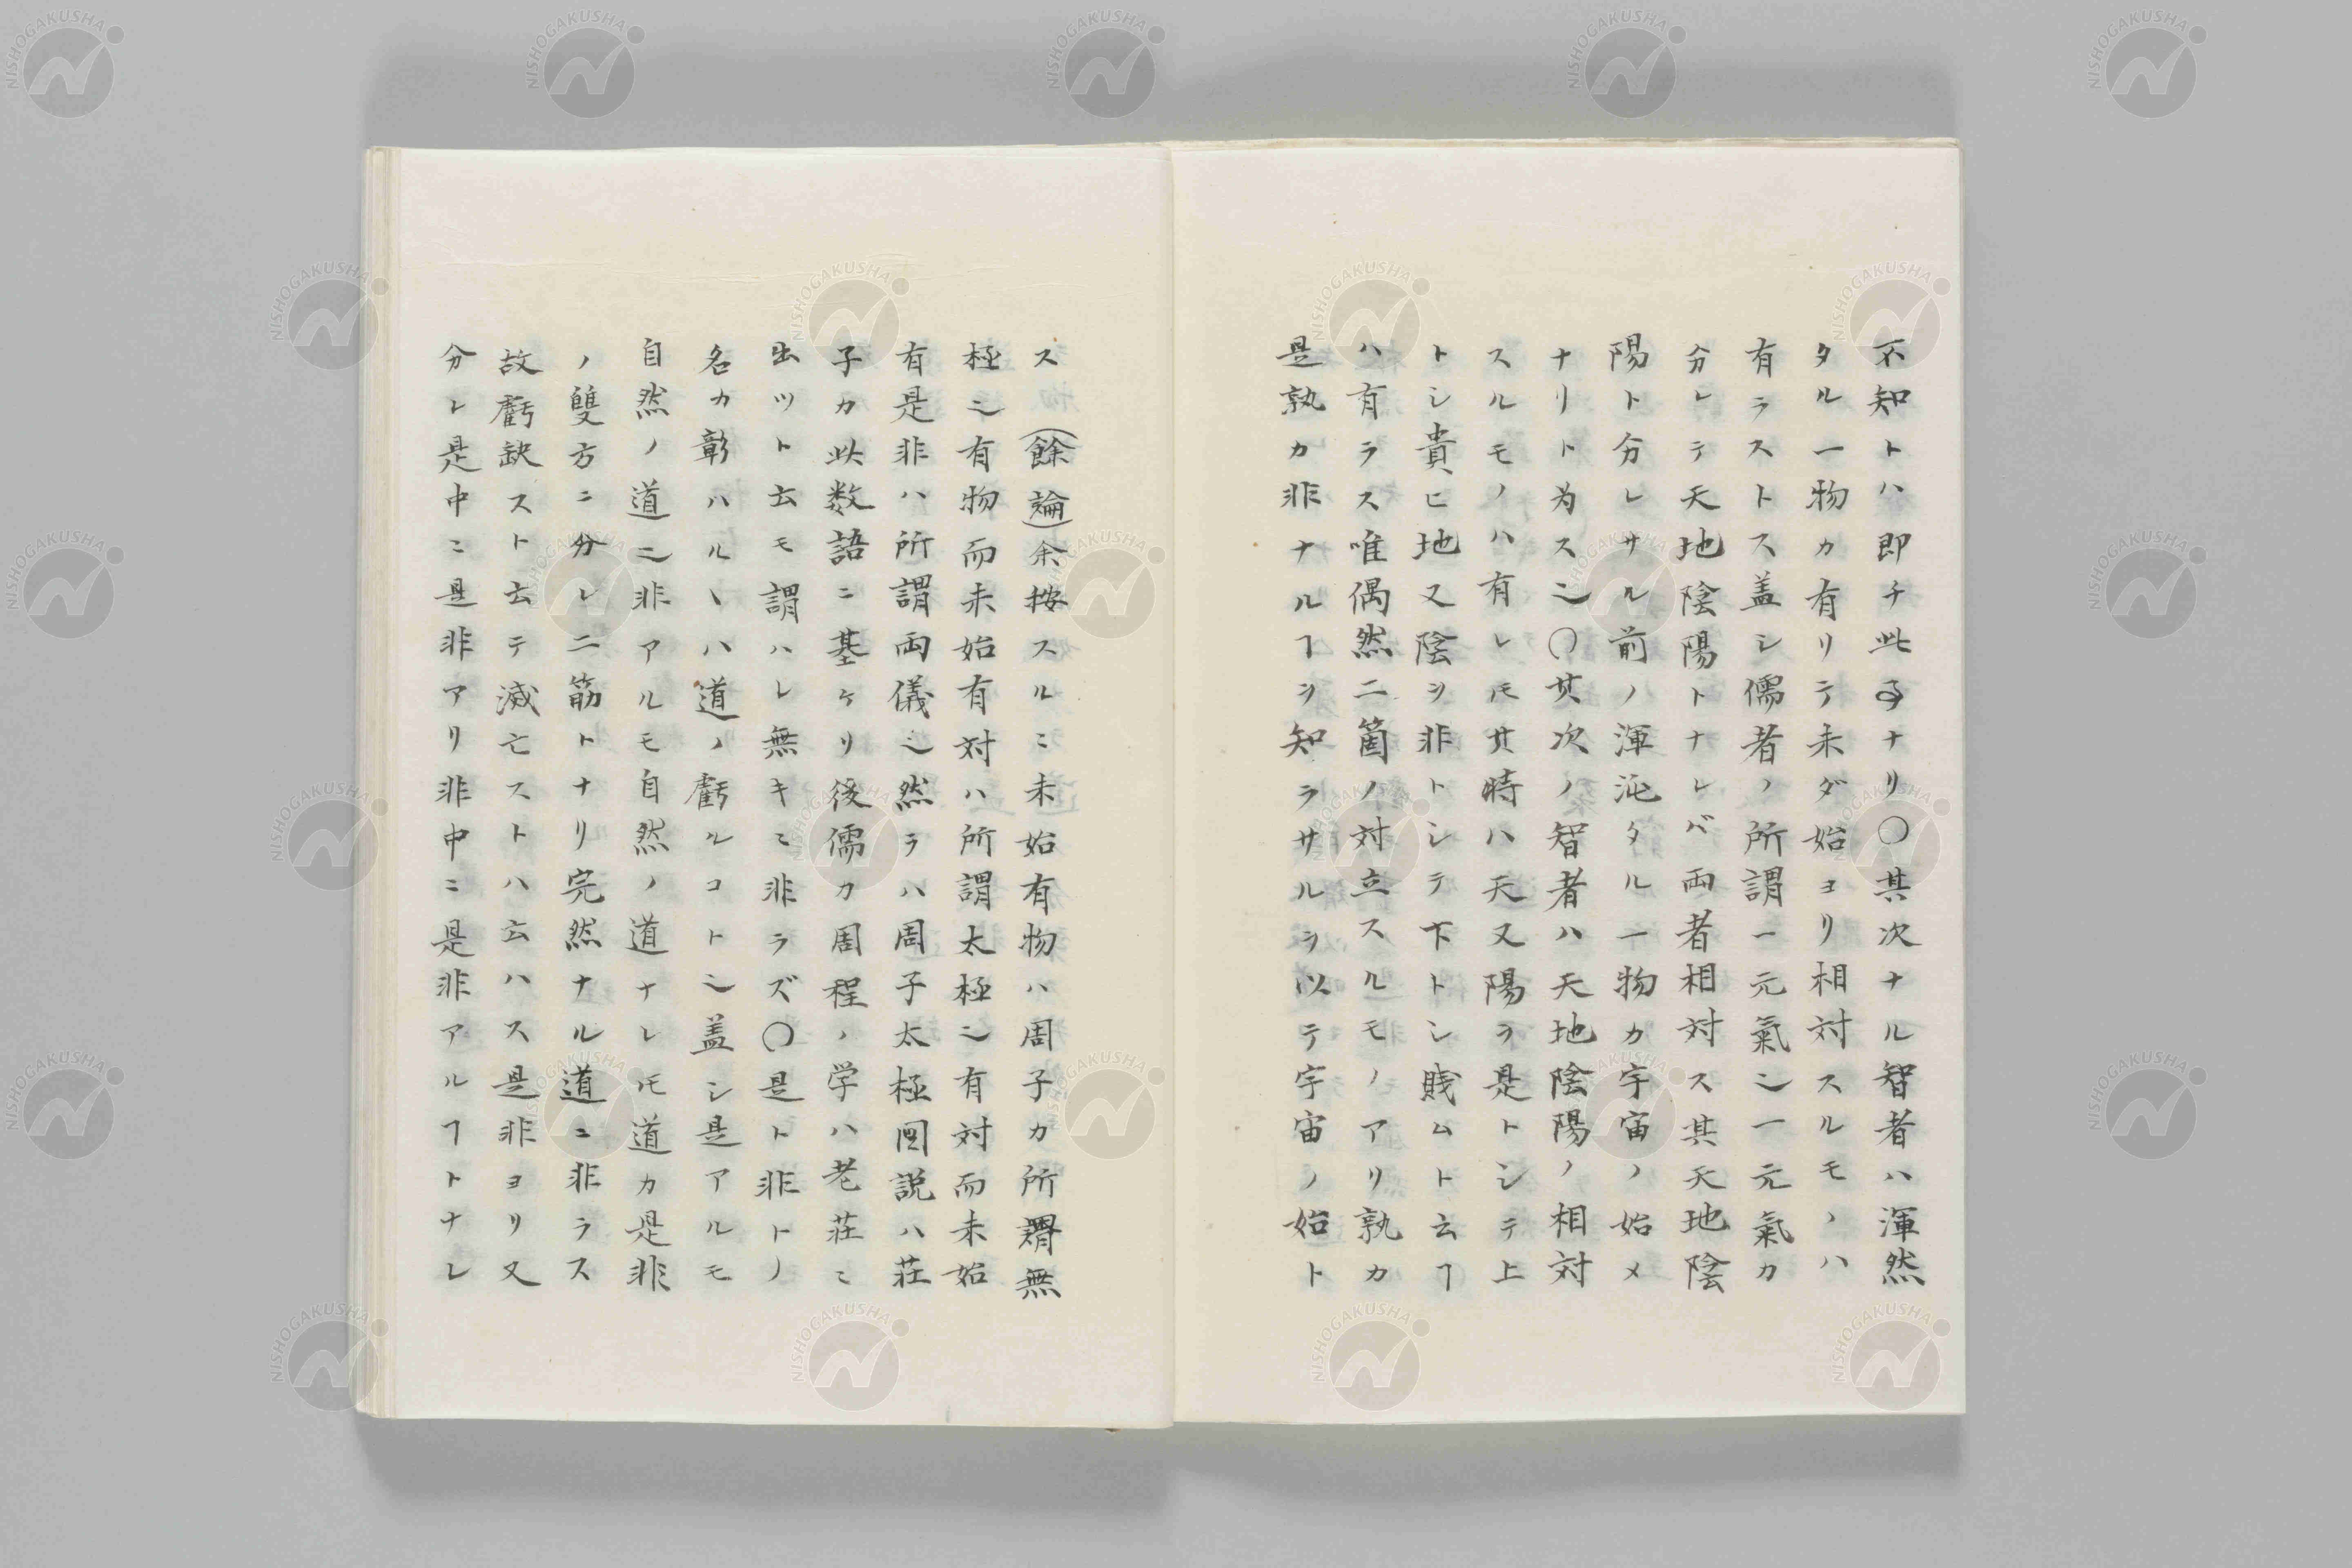 不知トハ即チ此事ナリ〇其次ナル智者ハ渾然
タル一物カ有リテ未ダ始ヨリ相対スルモノハ
有ラストス盖シ儒者ノ所謂一元氣也一元氣カ
分レテ天地陰陽トナレバ両者相対ス其天地陰
陽ト分レサル前ノ渾沌タル一物カ宇宙ノ始メ
ナリト為ス也〇其次ノ智者ハ天地陰陽ノ相対
スルモノハ有レ𪜈其時ハ天又陽ヲ是トシテ上
トシ貴ヒ地又陰ヲ非トシテ下トシ賎ムト云ヿ
ハ有ラス唯偶然二箇ノ対立スルモノアリ孰カ
是孰カ非ナルヿヲ知ラサルヲ以テ宇宙ノ始ト
ス(餘論)余按スルニ未始有物ハ周子カ所謂無
極也有物而未始有対ハ所謂太極也有対而未始
有是非ハ所謂両儀也然ラハ周子太極図説ハ荘
子カ此数語ニ基ケリ後儒カ周程ノ学ハ老荘ニ
出ツト云モ謂ハレ無キニ非ラズ〇是ト非トノ
名カ彰ハルヽハ道ノ虧ルコト也盖シ是アルモ
自然ノ道也非アルモ自然ノ道ナレ𪜈道カ是非
ノ雙方ニ分レ二筋トナリ完然ナル道ニ非ラス
故虧缺スト云テ滅亡ストハ云ハス是非ヨリ又
分レ是中ニ是非アリ非中ニ是非アルヿトナレ
NISHOGAKUSHA